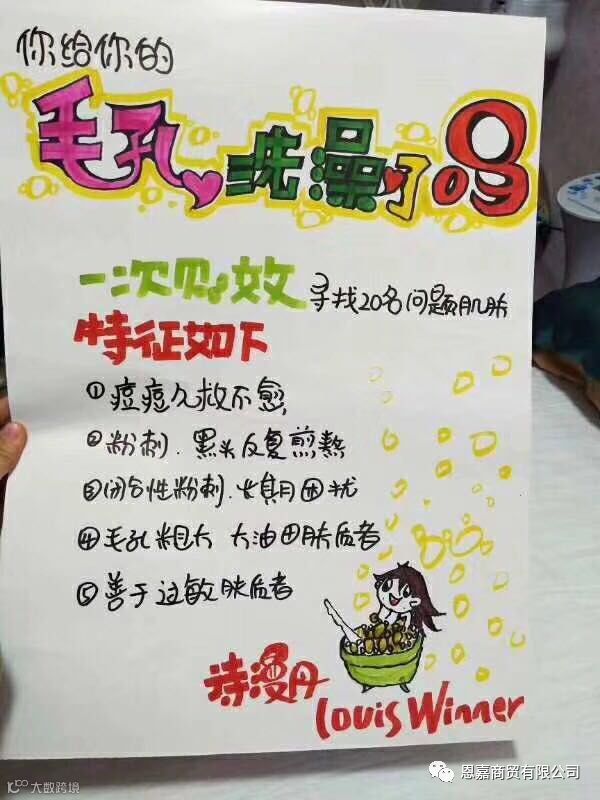 你给你的
毛孔洗澡了吗
一次见效 寻找20名问题肌肤
特征如下
①痘痘久救不愈,
②粉刺.黑头反复煎熬
③闭合性粉刺.长期困扰
④毛孔粗大 大油田肤质者
⑤善于过敏肤质者
诗漫丹
louis Winner
大数跨境
恩嘉商贸有限公司